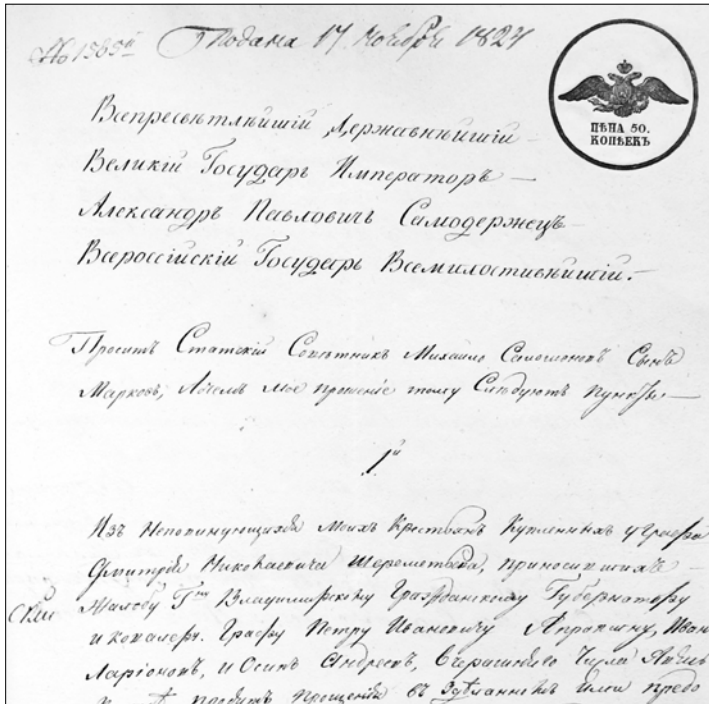 № 1585й Подана 17 ноября 1824
ЦѢНА 50.
КОПѢЕКЪ
Всепресвѣтлѣйшій Державнѣйшій
Великій Государь Императоръ —
Александръ Павловичь Самодержецъ
Всероссійскій Государь Всемилостивѣйшій. —
Проситъ Статскій Совѣтникъ Михайло Самойловъ Сынъ
Марковъ, А о чемъ мое прошеніе тому Слѣдуютъ пункты —
1й
Изъ Неповинующихся Моихъ Крестьянъ Купленныхъ у Графа
Дмитрія Николаевича Шереметьева, приносившихъ —
Жалобу Гну Владимірскому Гражданскому Губернатору
и Кавалеру. Графу Петру Ивановичу Апраксину, Иванъ
Ларіоновъ, и Осипъ Андреевъ, вчерашняго Числа
прощенія въ